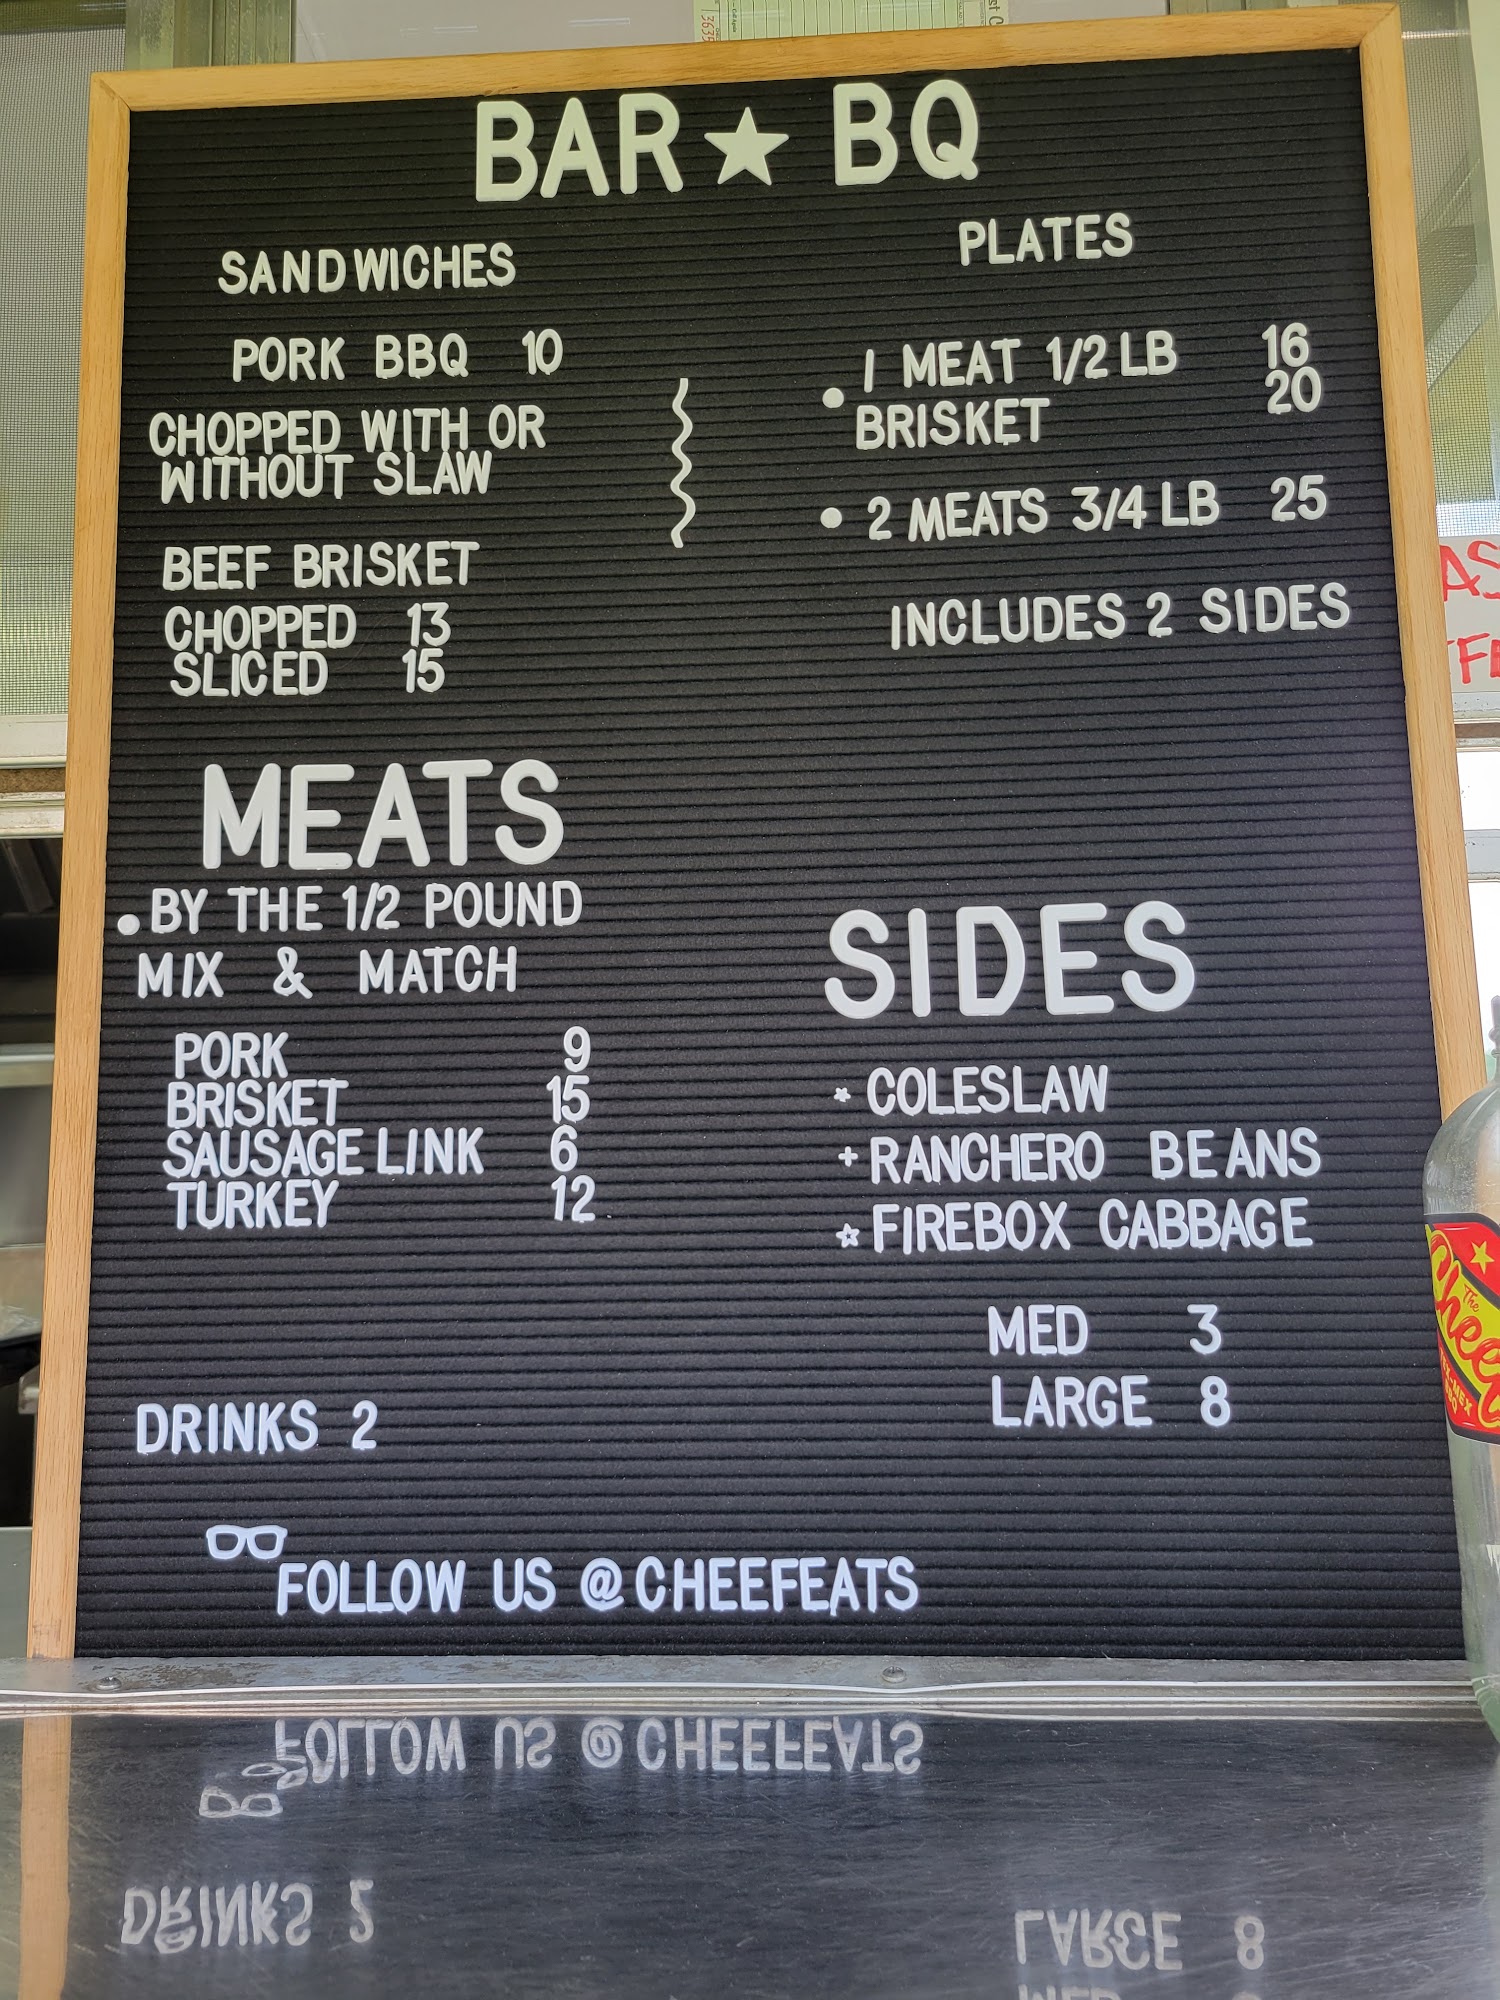 BAR★BQ
SANDWICHES
PORK BBQ 10
CHOPPED WITH OR
WITHOUT SLAW
BEEF BRISKET
CHOPPED 13
SLICED 15
PLATES
• 1 MEAT 1/2 LB 16
BRISKET 20
• 2 MEATS 3/4 LB 25
INCLUDES 2 SIDES
MEATS
• BY THE 1/2 POUND
MIX & MATCH
PORK 9
BRISKET 15
SAUSAGE LINK 6
TURKEY 12
SIDES
COLESLAW
+ RANCHERO BEANS
FIREBOX CABBAGE
MED 3
LARGE 8
DRINKS 2
FOLLOW US @CHEEFEATS
The